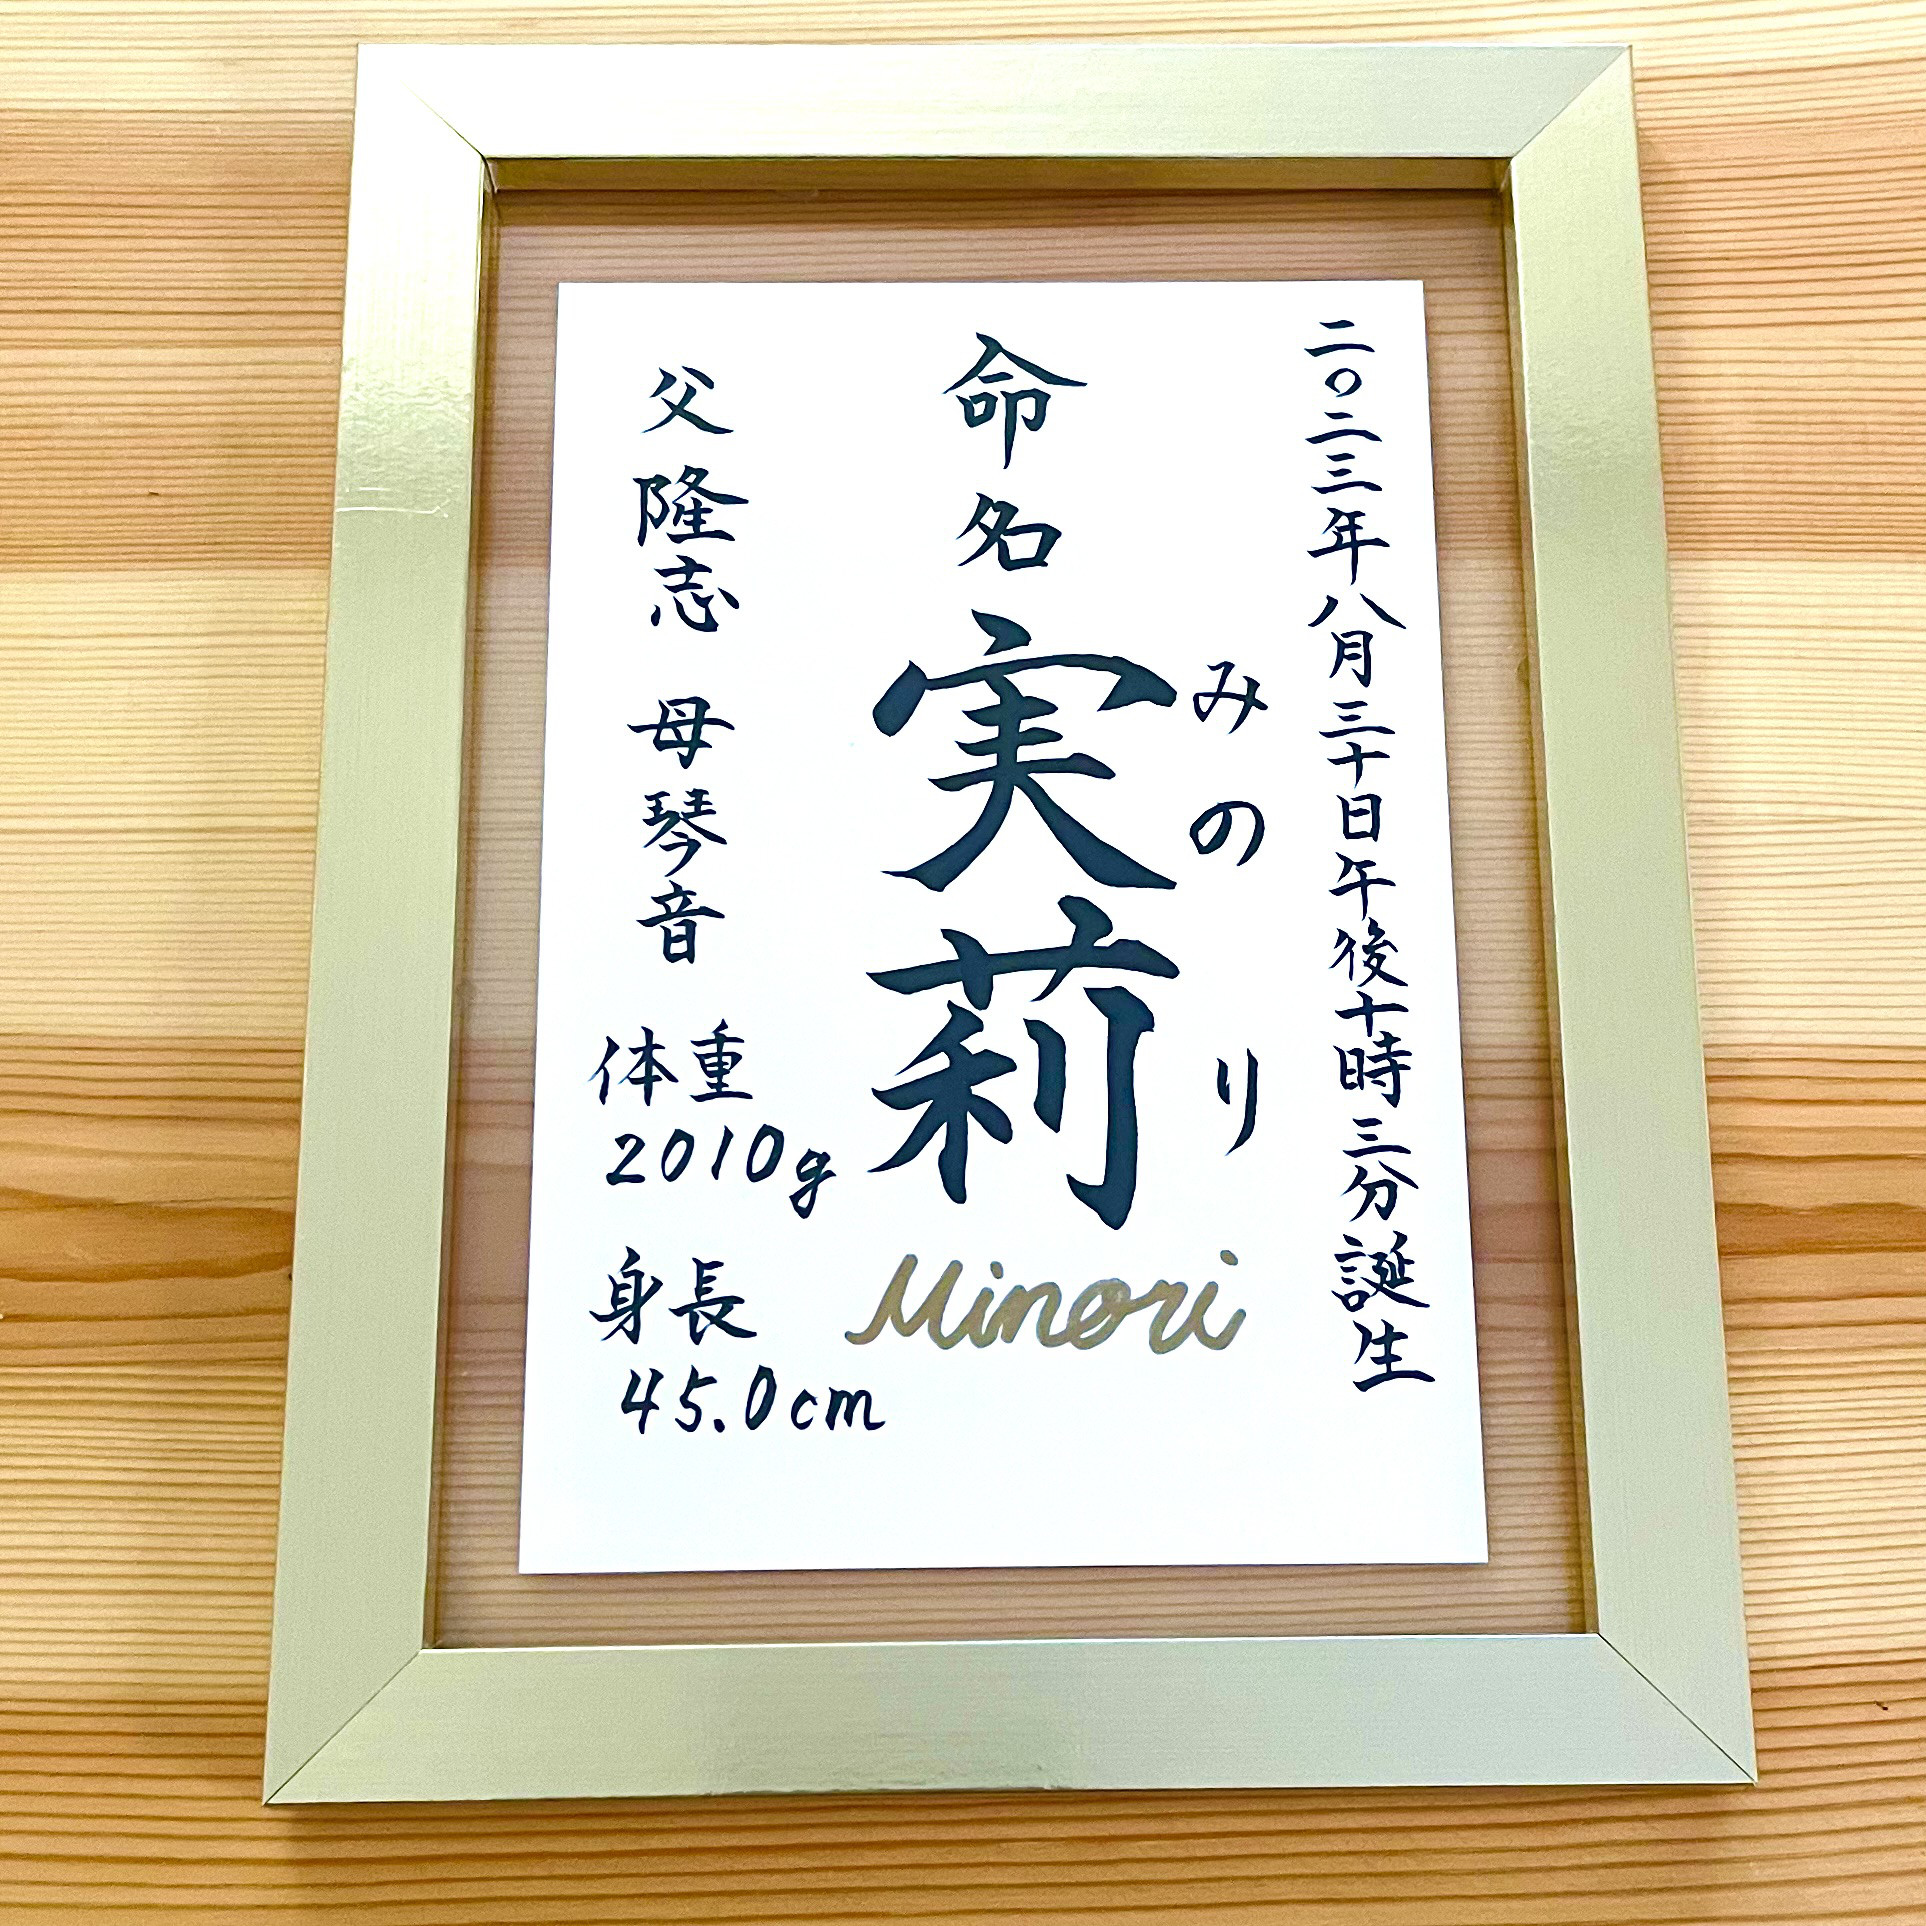 二〇二三年八月三十日午後十時三分誕生
みのり
命名
実莉
Minori
父 隆志 母 琴音
体重
2010g
身長
45.0cm